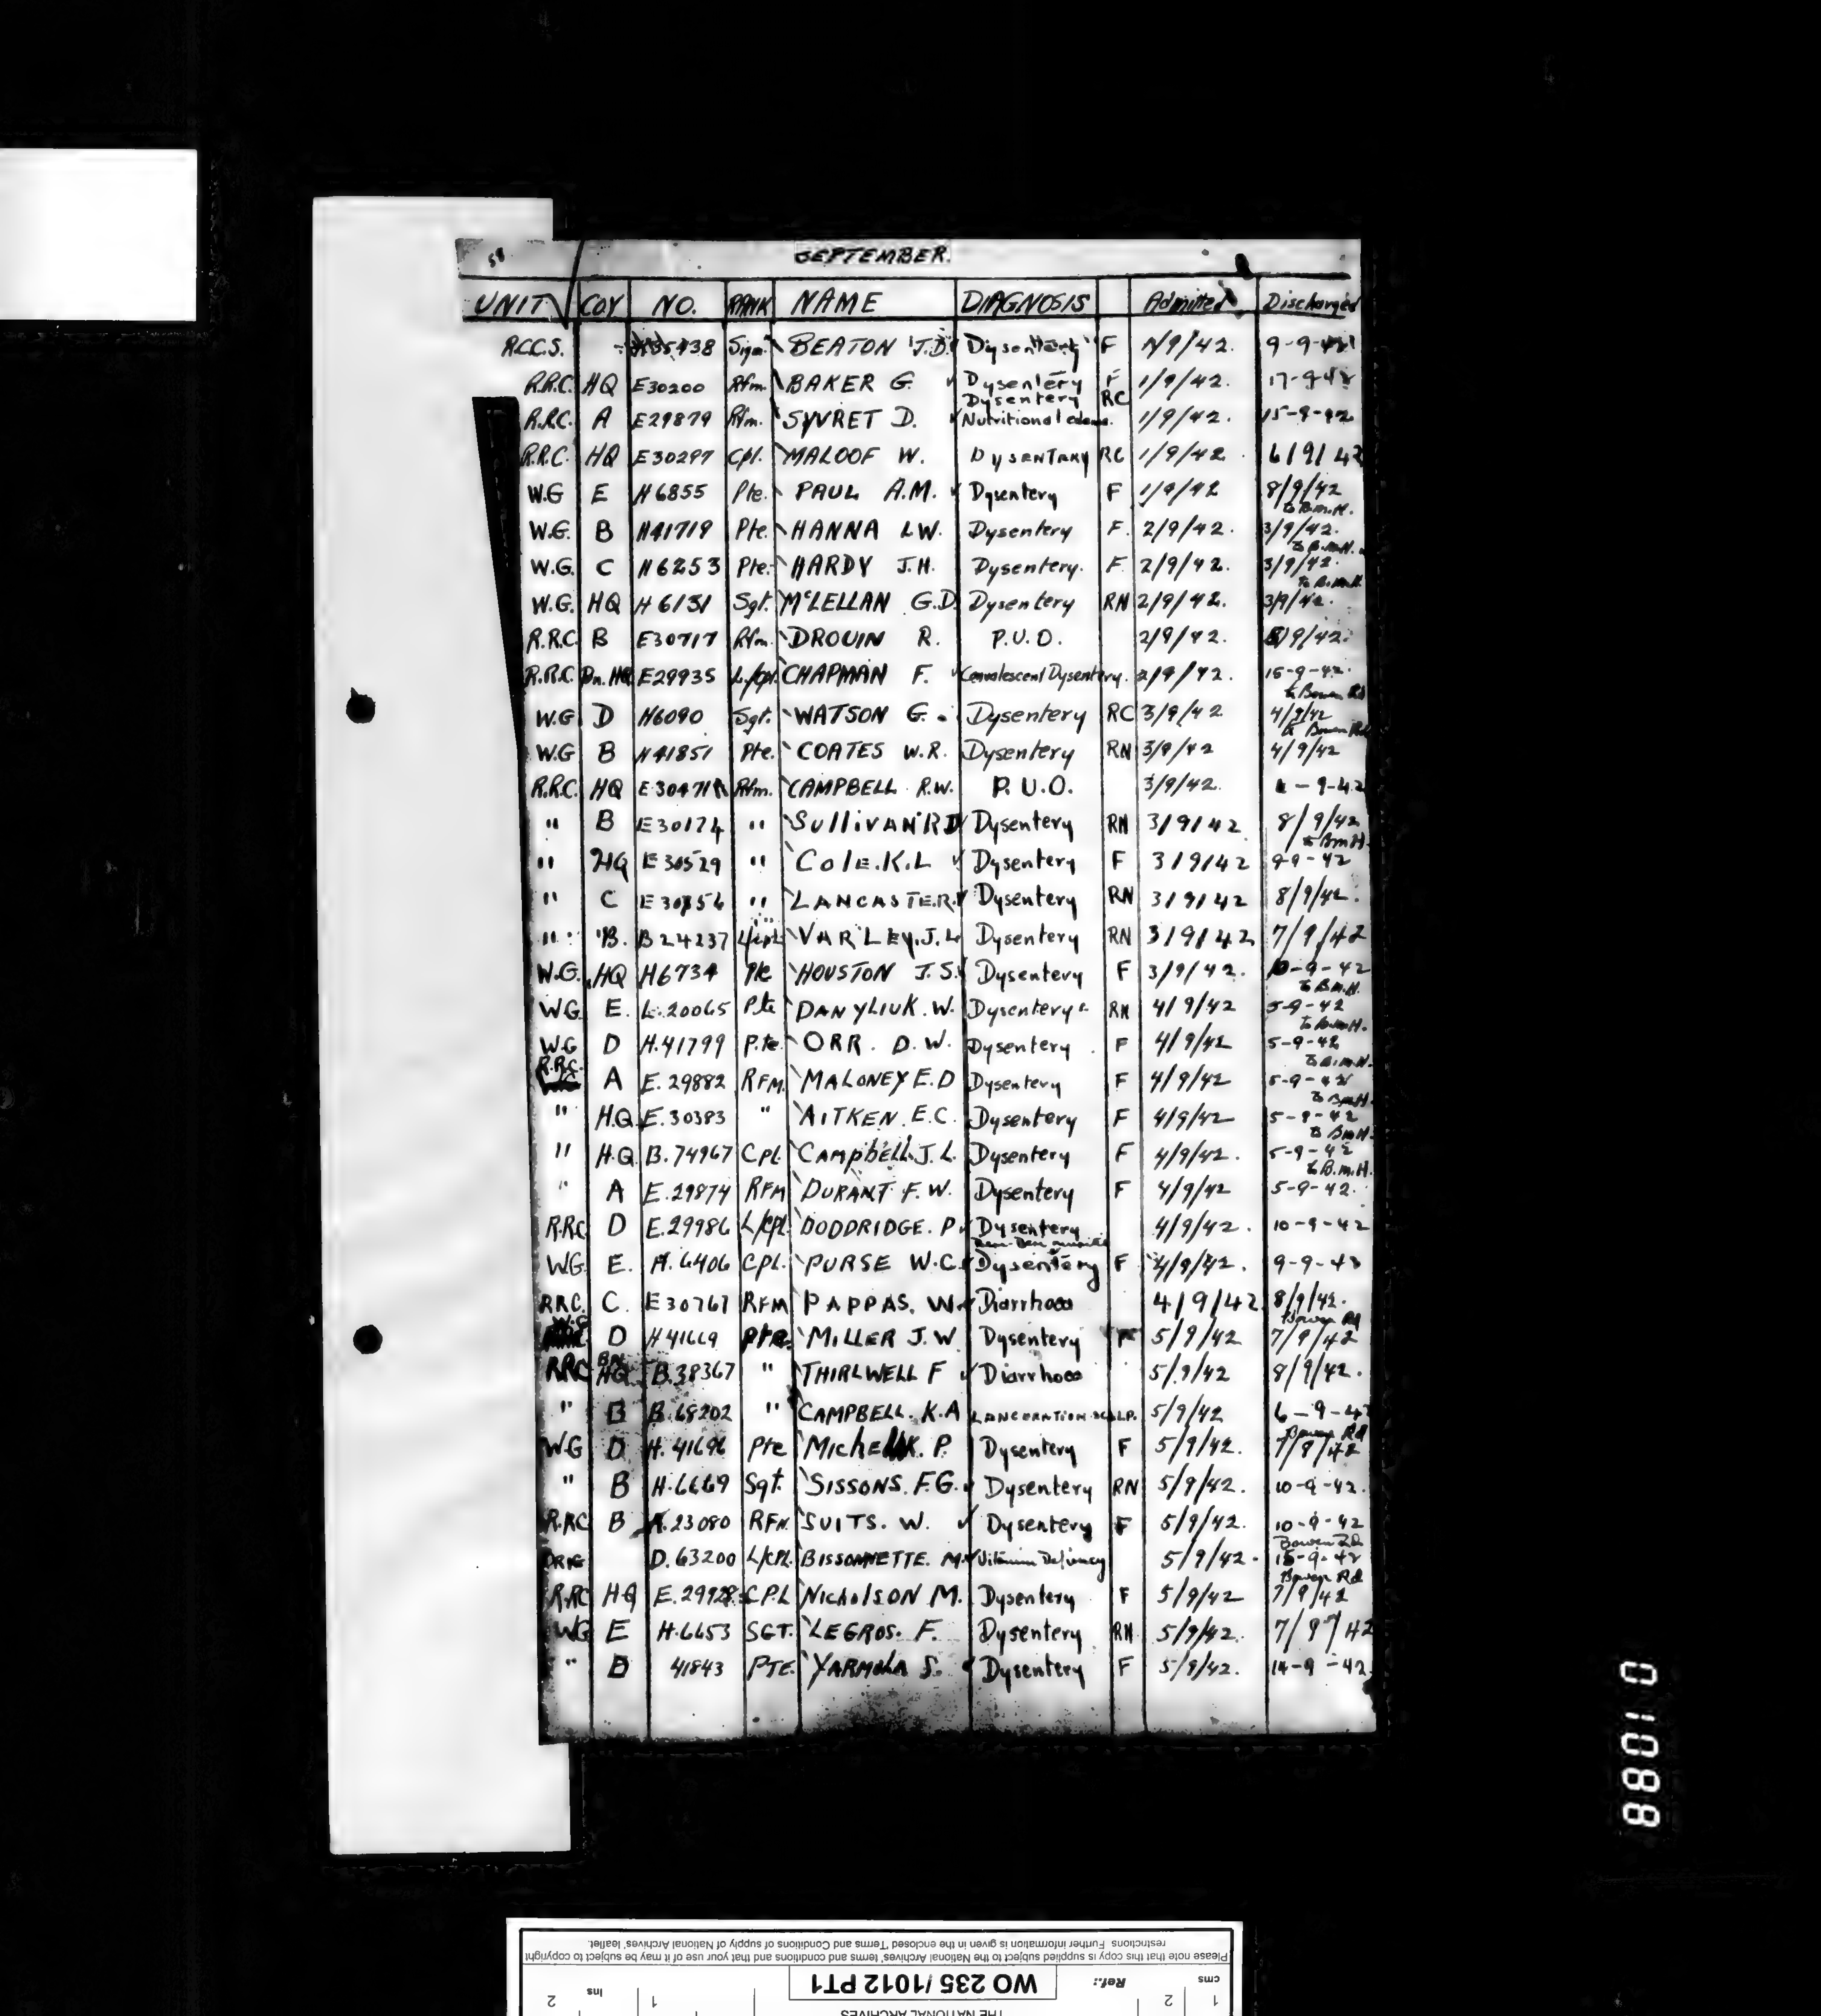 58 SEPTEMBER.
UNIT COY NO. RANK NAME DIAGNOSIS Admitted Discharged
R.C.C.S. Sigm. BEATON J.D. Dysentery F 1/9/42. 9-9-42
R.R.C. HQ E30200 Rfm. BAKER G. Dysentery F 1/9/42. 17-9-42
Dysentery RC
R.R.C. A E29879 Rfm. SYVRET D. Nutritional edema. 1/9/42. 15-9-42
R.R.C. HQ E30297 Cpl. MALOOF W. DYSENTARY RC 1/9/42. 6/9/42
W.G E H6855 Pte. PAUL A.M. Dysentery F 1/9/42 8/9/42
to B.M.H.
W.G. B H41719 Pte. HANNA L.W. Dysentery F. 2/9/42. 3/9/42.
to B.M.H.
W.G. C H6253 Pte. HARDY J.H. Dysentery. F. 2/9/42. 3/9/42.
to B.M.H.
W.G. HQ H6131 Sgt. McLELLAN G.D. Dysentery RN 2/9/42. 3/9/42.
R.R.C. B E30717 Rfm. DROUIN R. P.U.O. 2/9/42. 8/9/42.
R.R.C. Bn.HQ E29935 L/Cpl. CHAPMAN F. Convalescent Dysentery. 2/9/42. 15-9-42.
to Bowen Rd
W.G D H6090 Sgt. WATSON G. Dysentery RC 3/9/42 4/9/42
to Bowen Rd
W.G B H41851 Pte. COATES W.R. Dysentery RN 3/9/42 4/9/42
R.R.C. HQ Rfm. CAMPBELL R.W. P.U.O. 3/9/42. -9-42
" B E30174 " SULLIVAN R D Dysentery RN 3/9/42 8/9/42
to BmH.
" HQ E30529 " COLE. K.L Dysentery F 3/9/42 9-9-42
" C " LANCASTER. Dysentery RN 3/9/42 8/9/42.
" B. B24237 L/Cpl. VARLEY. J.L. Dysentery RN 3/9/42 7/9/42
W.G. HQ H6734 Pte HOUSTON J.S. Dysentery F 3/9/42. 10-9-42
to BmH.
WG. E. L.20065 Pte DANYLIUK. W. Dysentery RN 4/9/42 5-9-42
to BmH.
W.G D H.41799 P.te. ORR. D.W. Dysentery. F 4/9/42 5-9-42
to B.m.H.
R.R.C. A E.29882 RFM. MALONEY E.D Dysentery F 4/9/42 5-9-42
to BmH.
" H.Q. E.30383 " AITKEN. E.C. Dysentery F 4/9/42 5-9-42
to BmH.
" H.Q. B.74967 CPL. CAMPBELL. J.L. Dysentery F 4/9/42. 5-9-42
to B.m.H.
" A E.29874 RFM DURANT F.W. Dysentery F 4/9/42 5-9-42.
R.RC. D E.29986 L/CPL. DODDRIDGE. P. Dysentery 4/9/42. 10-9-42
W.G. E. H.6406 CPL. PURSE W.C. Dysentery F 4/9/42. 9-9-42
RRC. C. E30767 RFM PAPPAS. W. Diarrhoea 4/9/42 8/9/42.
Bowen Rd
W.G D H41669 Pte. MILLER J.W. Dysentery F 5/9/42 7/9/42
RRC BN HQ B.38367 " THIRLWELL F Diarrhoea 5/9/42 8/9/42.
" B B.68202 " CAMPBELL. K.A LANCERATION SCALP. 5/9/42 6-9-42
Bowen Rd
W.G D H.41696 Pte P. Dysentery F 5/9/42. 7/9/42
" B H.6669 Sgt. SISSONS. F.G. Dysentery RN 5/9/42. 10-9-42.
R.RC B A.23080 RFM. SUITS. W. Dysentery F 5/9/42. 10-9-42
Bowen Rd
D.63200 L/CPL. BISSONNETTE. M. Vitamin Deficiency 5/9/42. 15-9-42
Bowen Rd
R.RC HQ E.29928. CP.L NICHOLSON M. Dysentery F 5/9/42 7/9/42
WG E H.6653 SGT. LEGROS. F. Dysentery RN 5/9/42. 7/9/42
" D 41843 PTE. YARMOLA S. Dysentery F 5/9/42. 14-9-42.
01088
Please note that this copy is supplied subject to the National Archives' terms and conditions and that your use of it may be subject to copyright
restrictions. Further information is given in the enclosed 'Terms and Conditions of supply of National Archives' leaflet.
cms 1 2 Ref.: WO 235/1012 PT1 1 ins 2
THE NATIONAL ARCHIVES